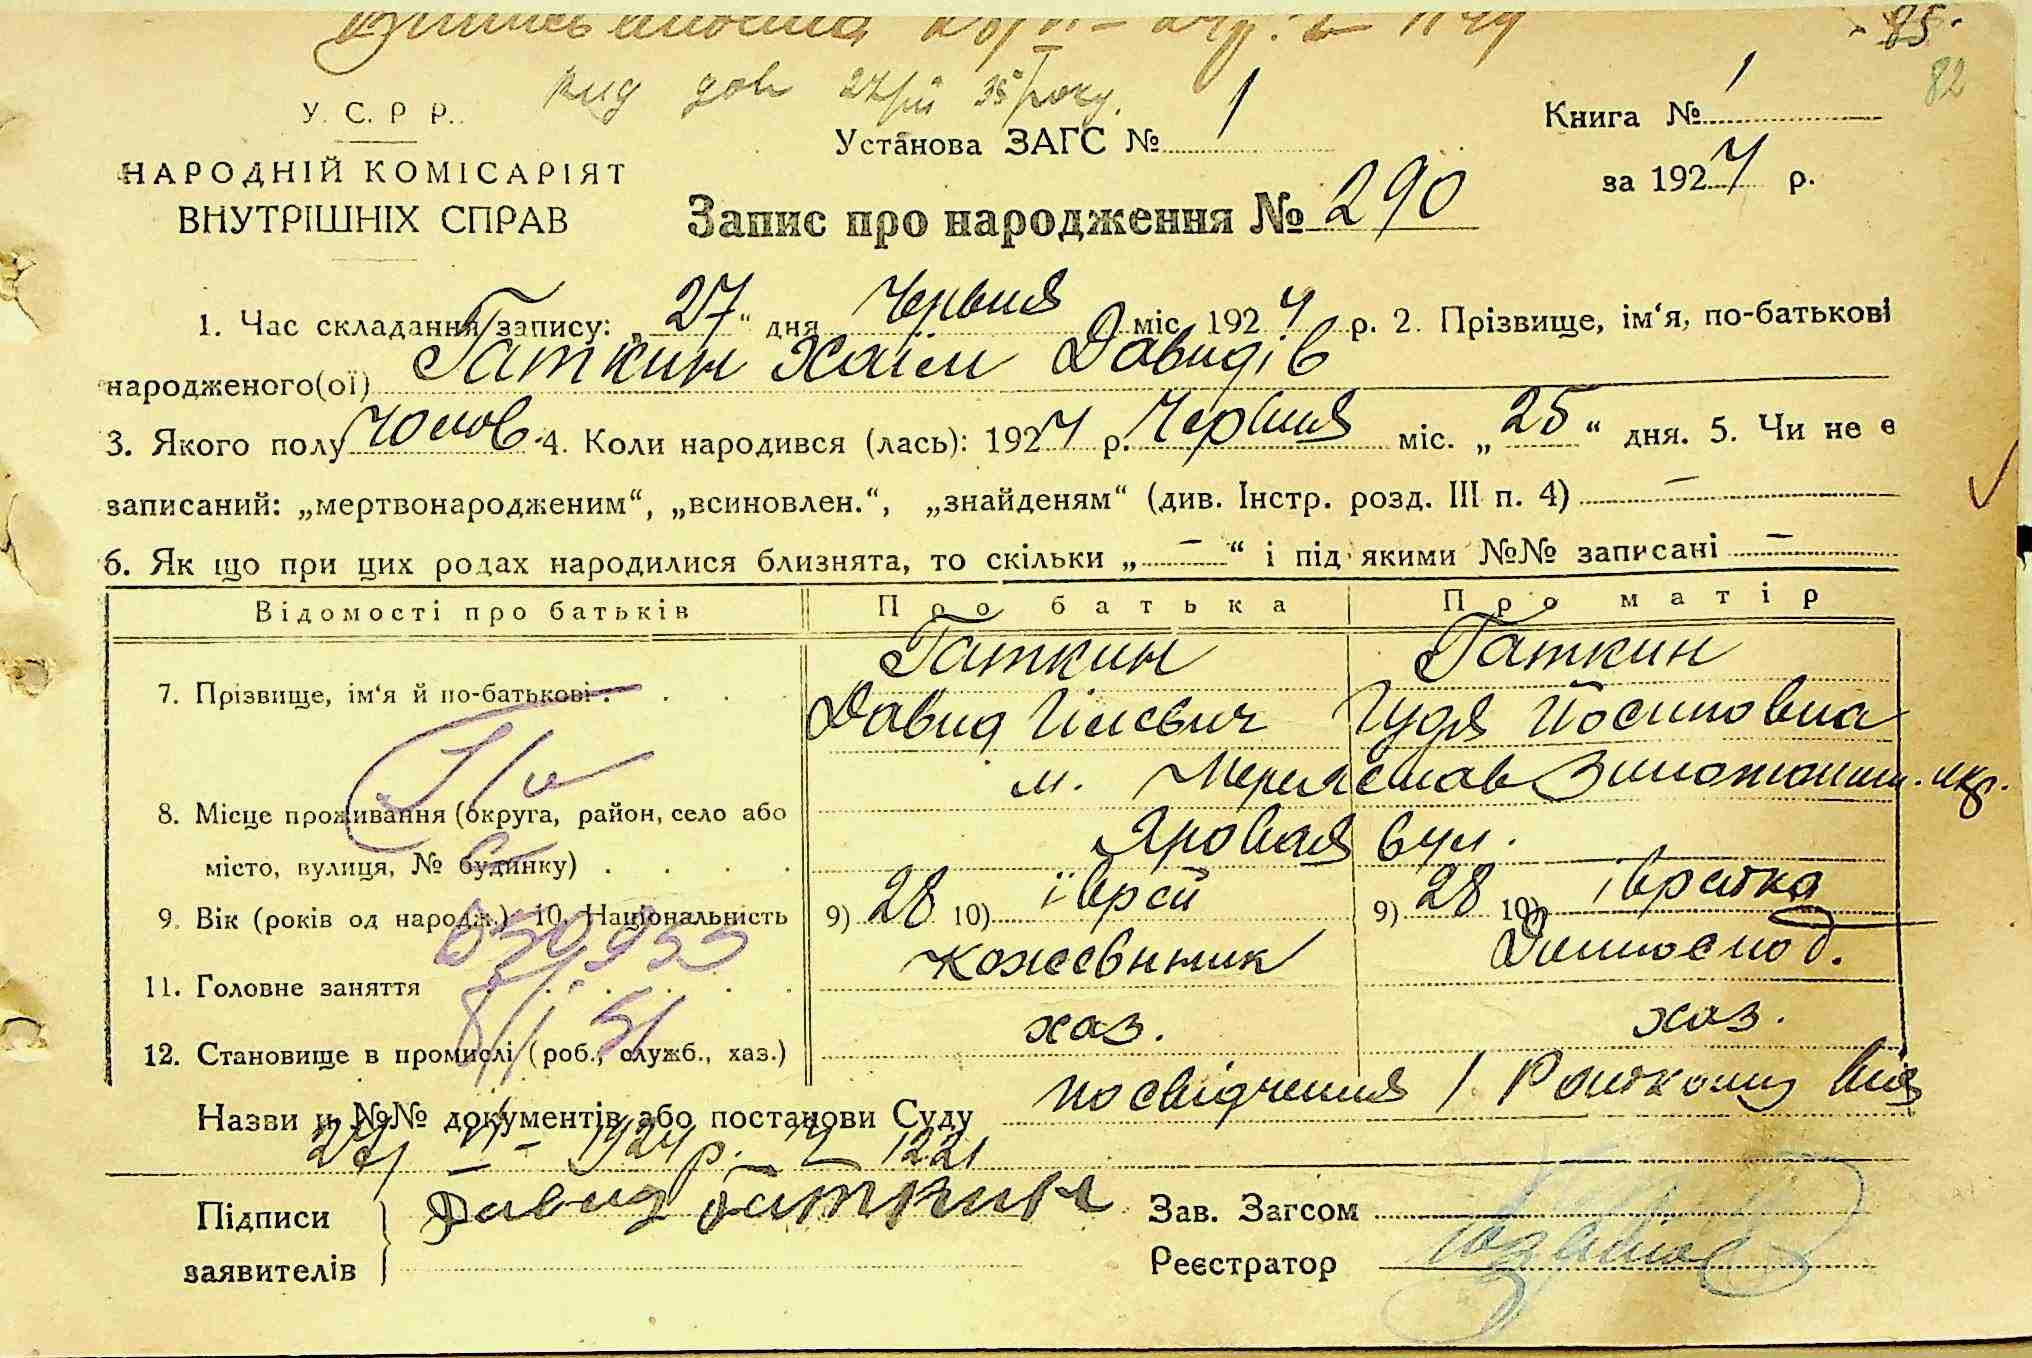 85.
82
вид дов 27/VII 35 року.
У. С. Р Р.
НАРОДНІЙ КОМІСАРІЯТ
ВНУТРІШНІХ СПРАВ
Установа ЗАГС № 1
Книга № 1
за 1924 р.
Запис про народження № 290
1. Час складання запису: „27“ дня Червня міс. 1924 р. 2. Прізвище, ім‘я, по-батькові
народженого(ої) Гаткин Хаїм Давидів
3. Якого полу чолов. 4. Коли народився (лась): 1924 р. Червня міс. „25“ дня. 5. Чи не є
записаний: „мертвонародженим“, „всиновлен.“, „знайденям“ (див. Інстр. розд. III п. 4) —
6. Як що при цих родах народилися близнята, то скільки „—“ і під якими №№ записані —
Відомості про батьків Про батька Про матір
Гаткин Гаткин
7. Прізвище, ім‘я й по-батькові . . .
Давид Йосиповна
м. Переяслав
8. Місце проживання (округа, район, село або
Яровая вул.
місто, вулиця, № будинку) . . . .
9. Вік (років од народж.) 10. Національність 9) 28 10) їврей 9) 28 10) івреїка
11. Головне заняття кожевник Домогоспод.
12. Становище в промислі (роб., служб., хаз.) хаз. хаз.
Назви и №№ документів або постанови Суду посвідчення / Раиткому від
27/VI – 1924 р. № 1221
Підписи Давид Гаткин Зав. Загсом
заявителів Реєстратор